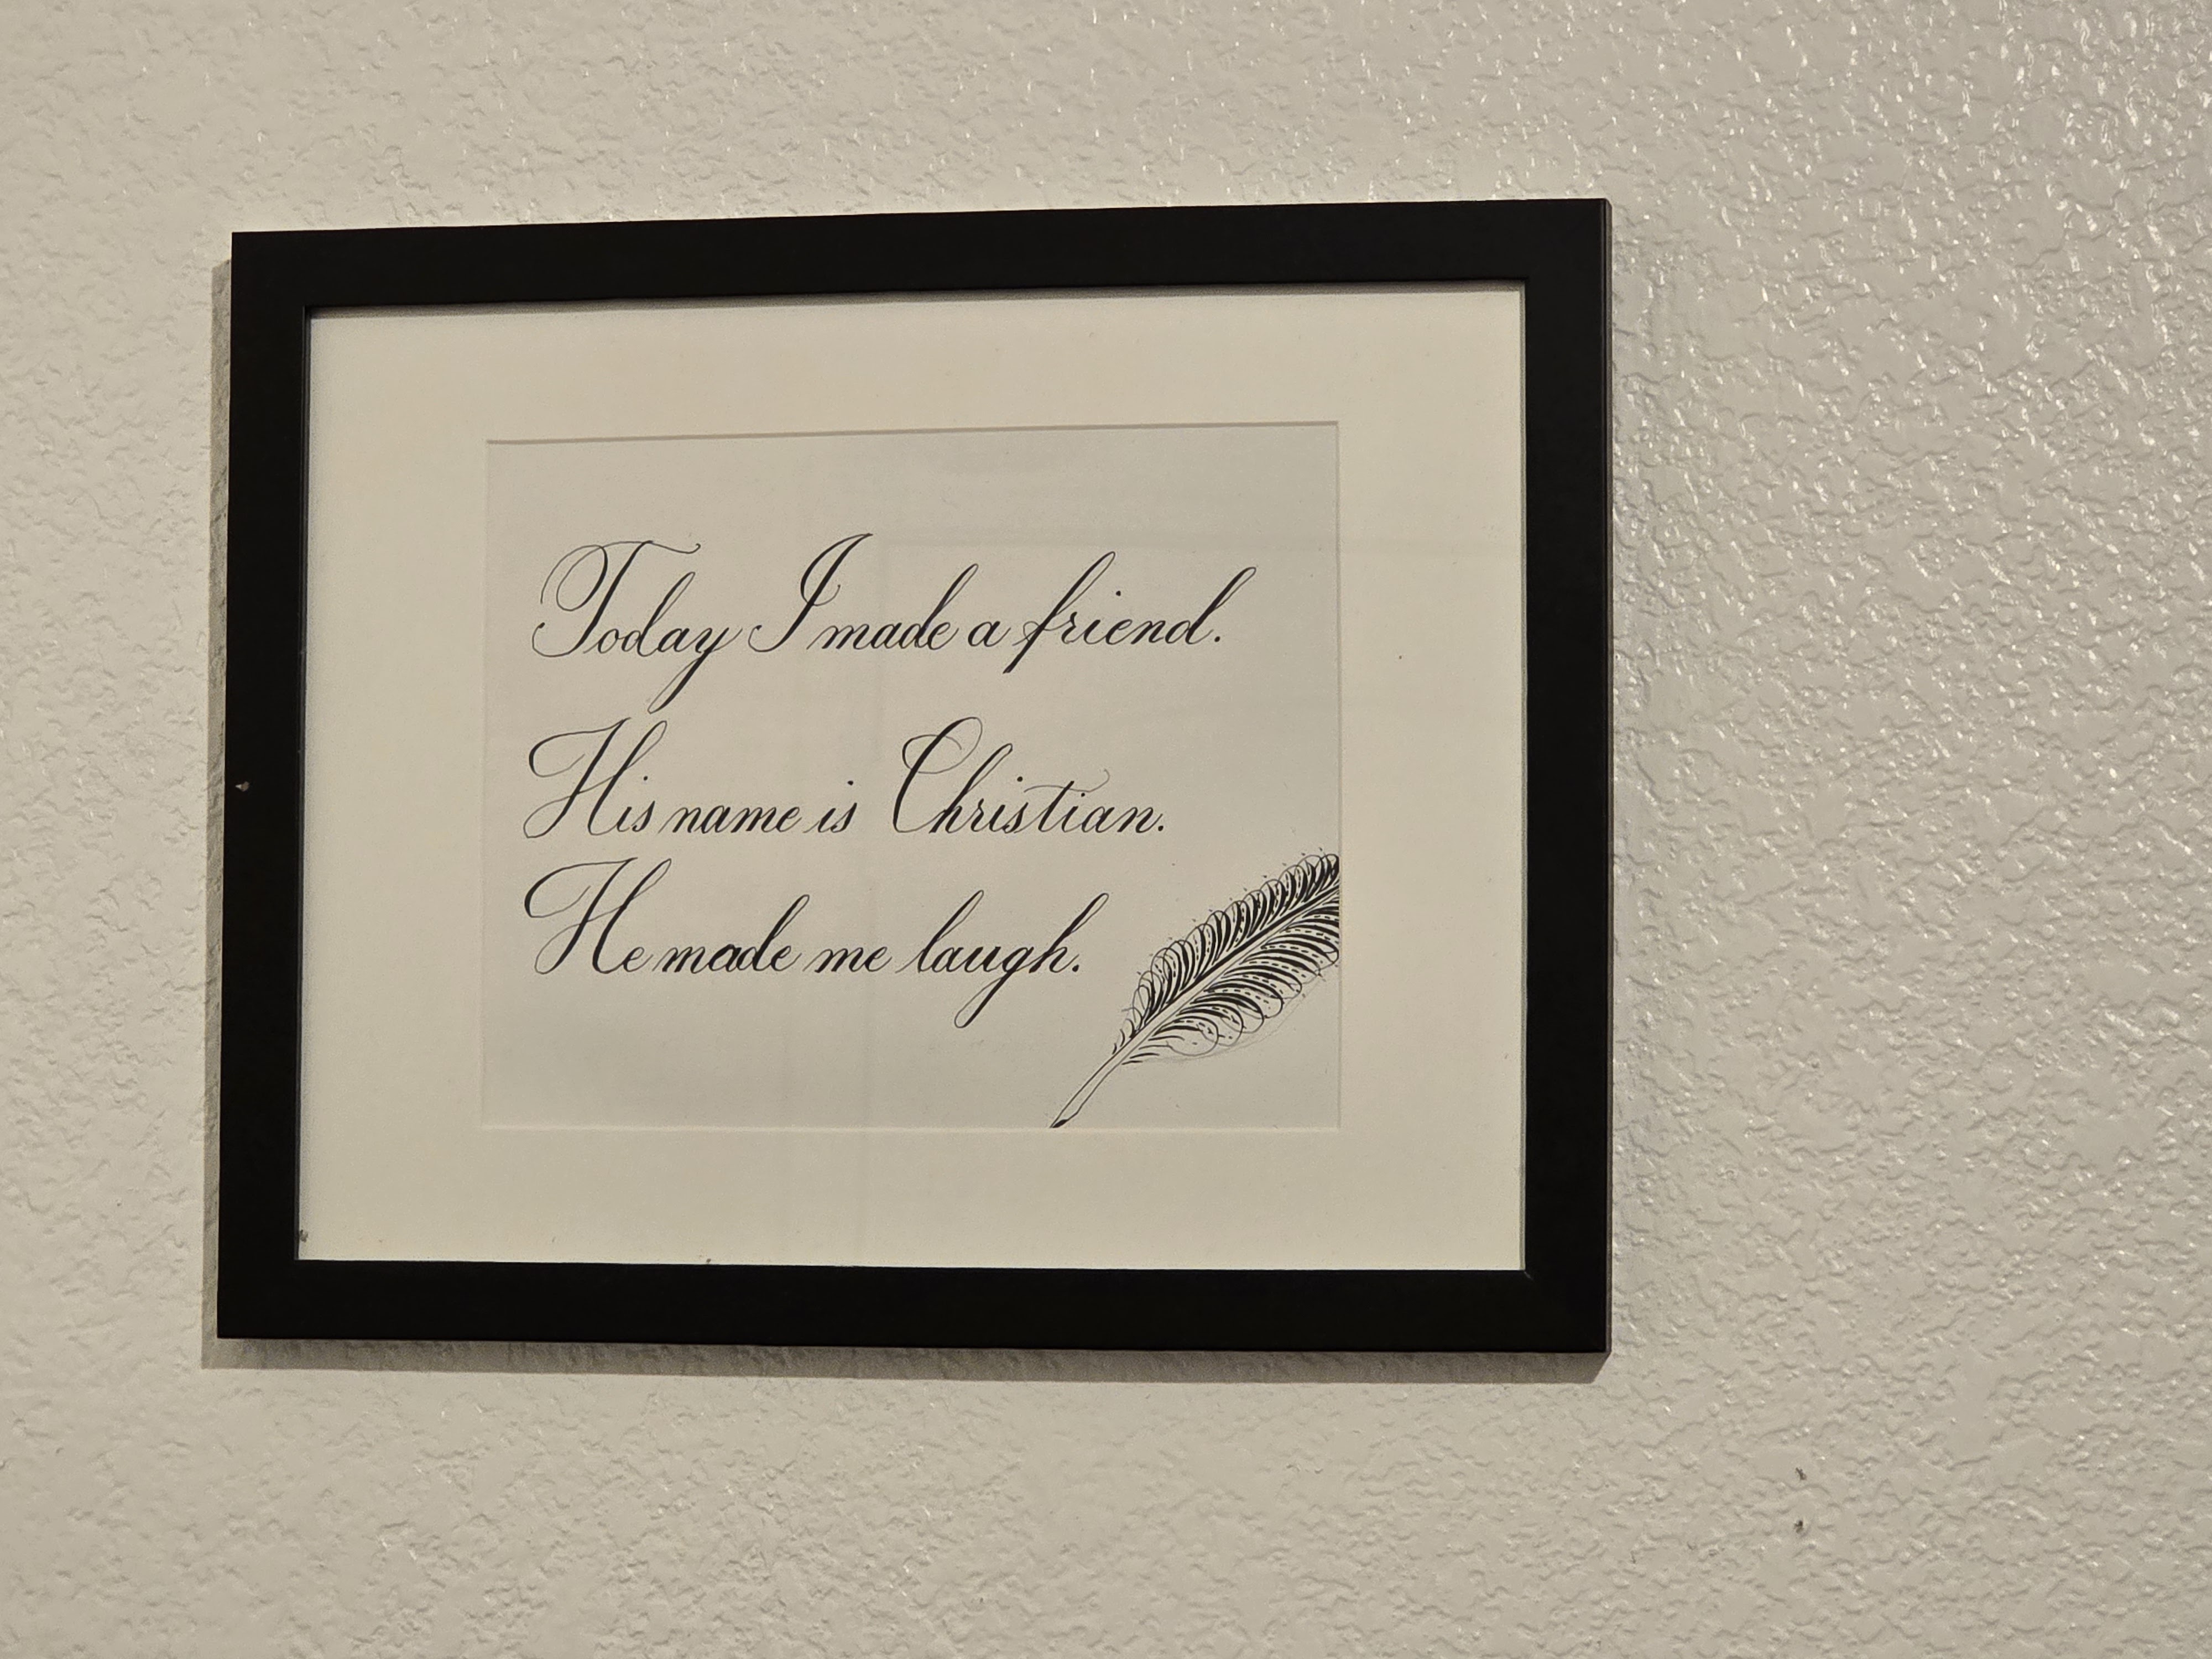 Today I made a friend.
His name is Christian.
He made me laugh.